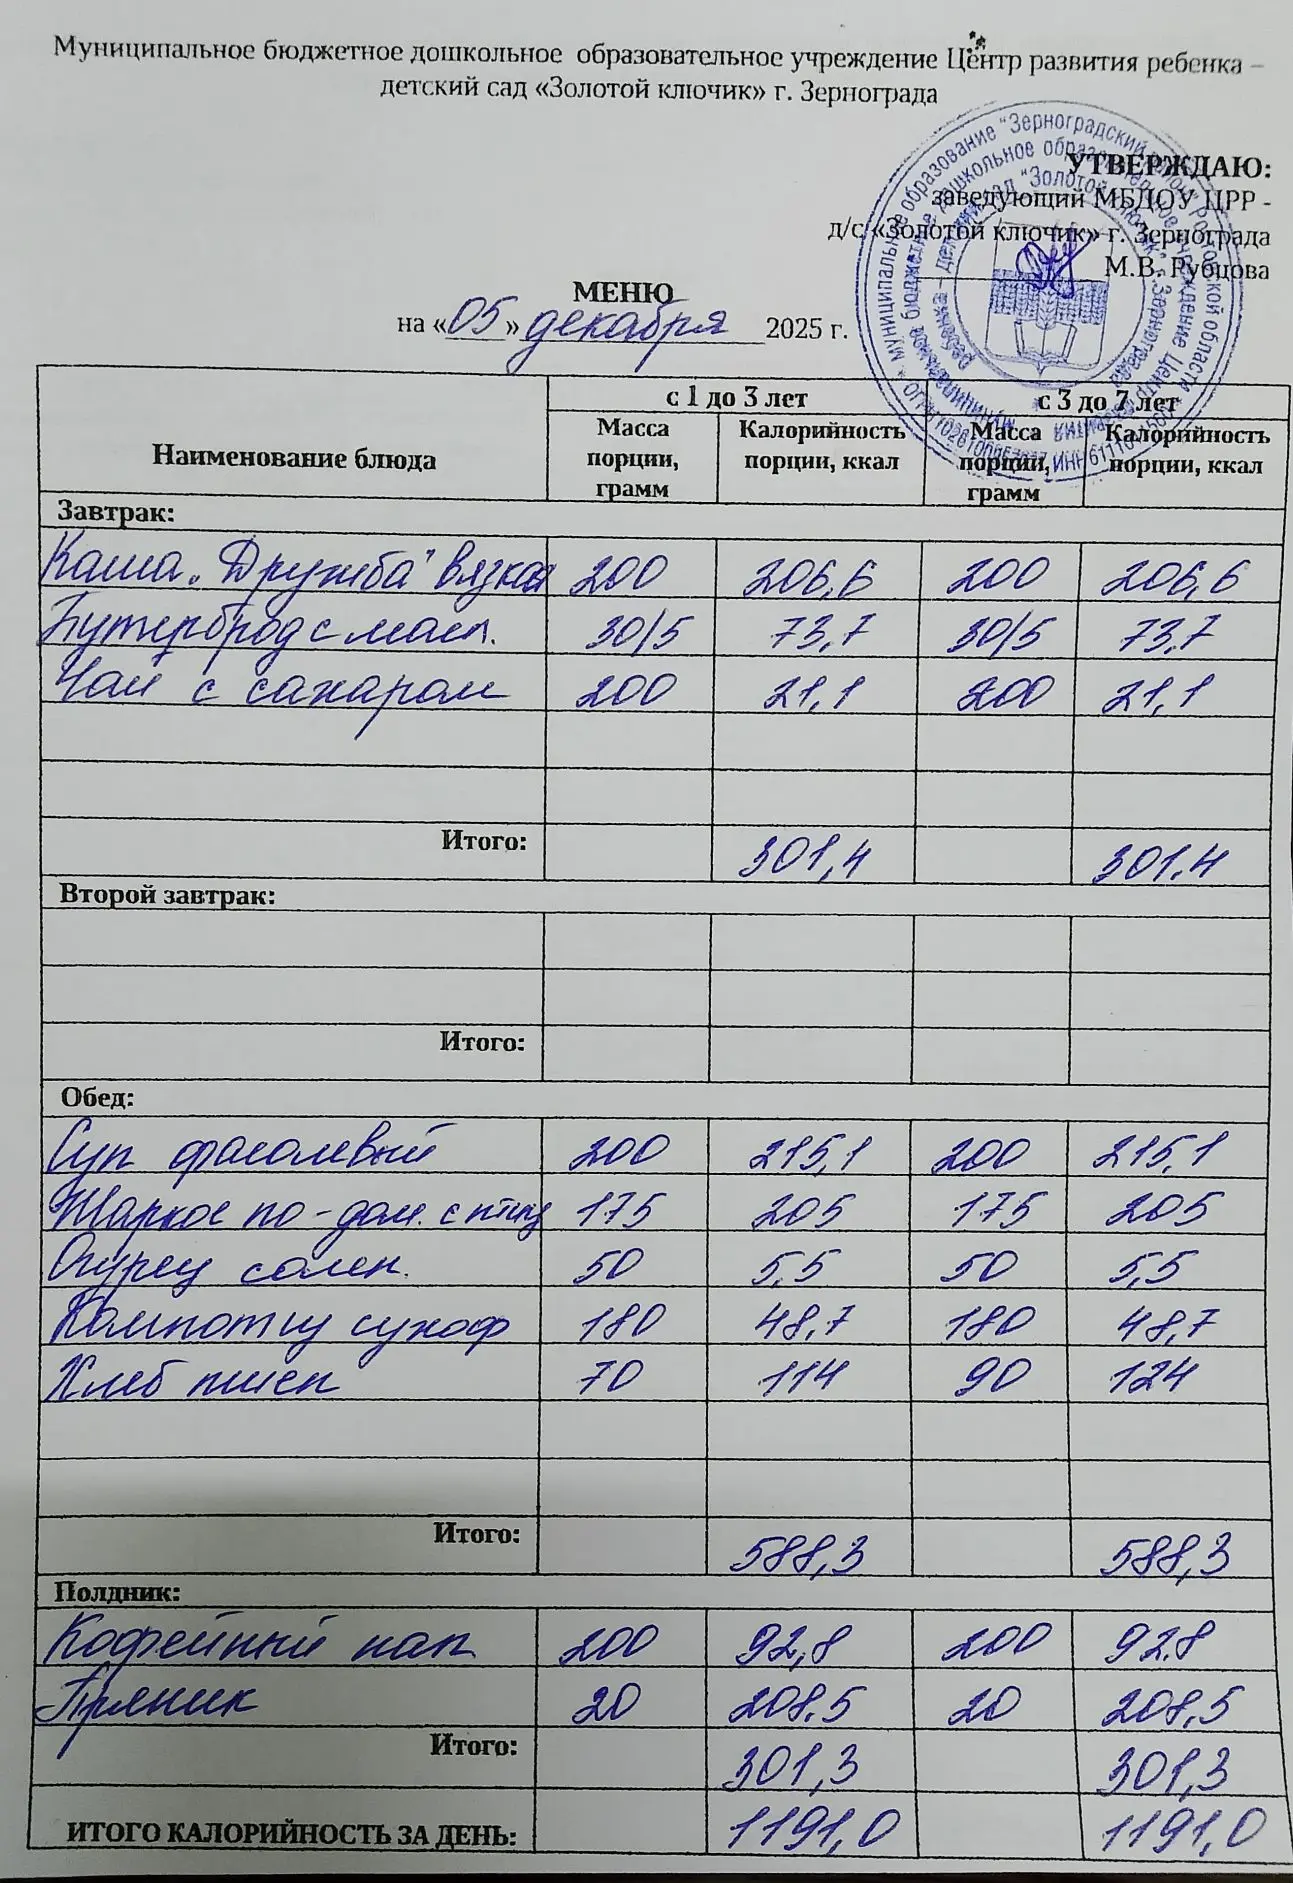 Муниципальное бюджетное дошкольное образовательное учреждение Центр развития ребенка –
детский сад «Золотой ключик» г. Зернограда
УТВЕРЖДАЮ:
заведующий МБДОУ ЦРР -
д/с «Золотой ключик» г. Зернограда
М.В. Рубцова
МЕНЮ
на «05» декабря 2025 г.
Наименование блюда с 1 до 3 лет с 3 до 7 лет
Масса порции, грамм Калорийность порции, ккал Масса порции, грамм Калорийность порции, ккал
Завтрак:
Каша „Дружба" вязкая 200 206,6 200 206,6
Бутерброд с масл. 30/5 73,7 30/5 73.7
Чай с сахаром 200 21,1 200 21,1
Итого: 301,4 301.4
Второй завтрак:
Итого:
Обед:
Суп фасолевый 200 215,1 200 215,1
Жаркое по-дом. с птиц 175 205 175 205
Огурец солен. 50 5,5 50 5,5
Компот из сухоф 180 48,7 180 48,7
Хлеб пшен 70 114 90 124
Итого: 588,3 588,3
Полдник:
Кофейный нап 200 92,8 200 92.8
Пряник 20 208.5 20 208,5
Итого: 301,3 301,3
ИТОГО КАЛОРИЙНОСТЬ ЗА ДЕНЬ: 1191,0 1191,0